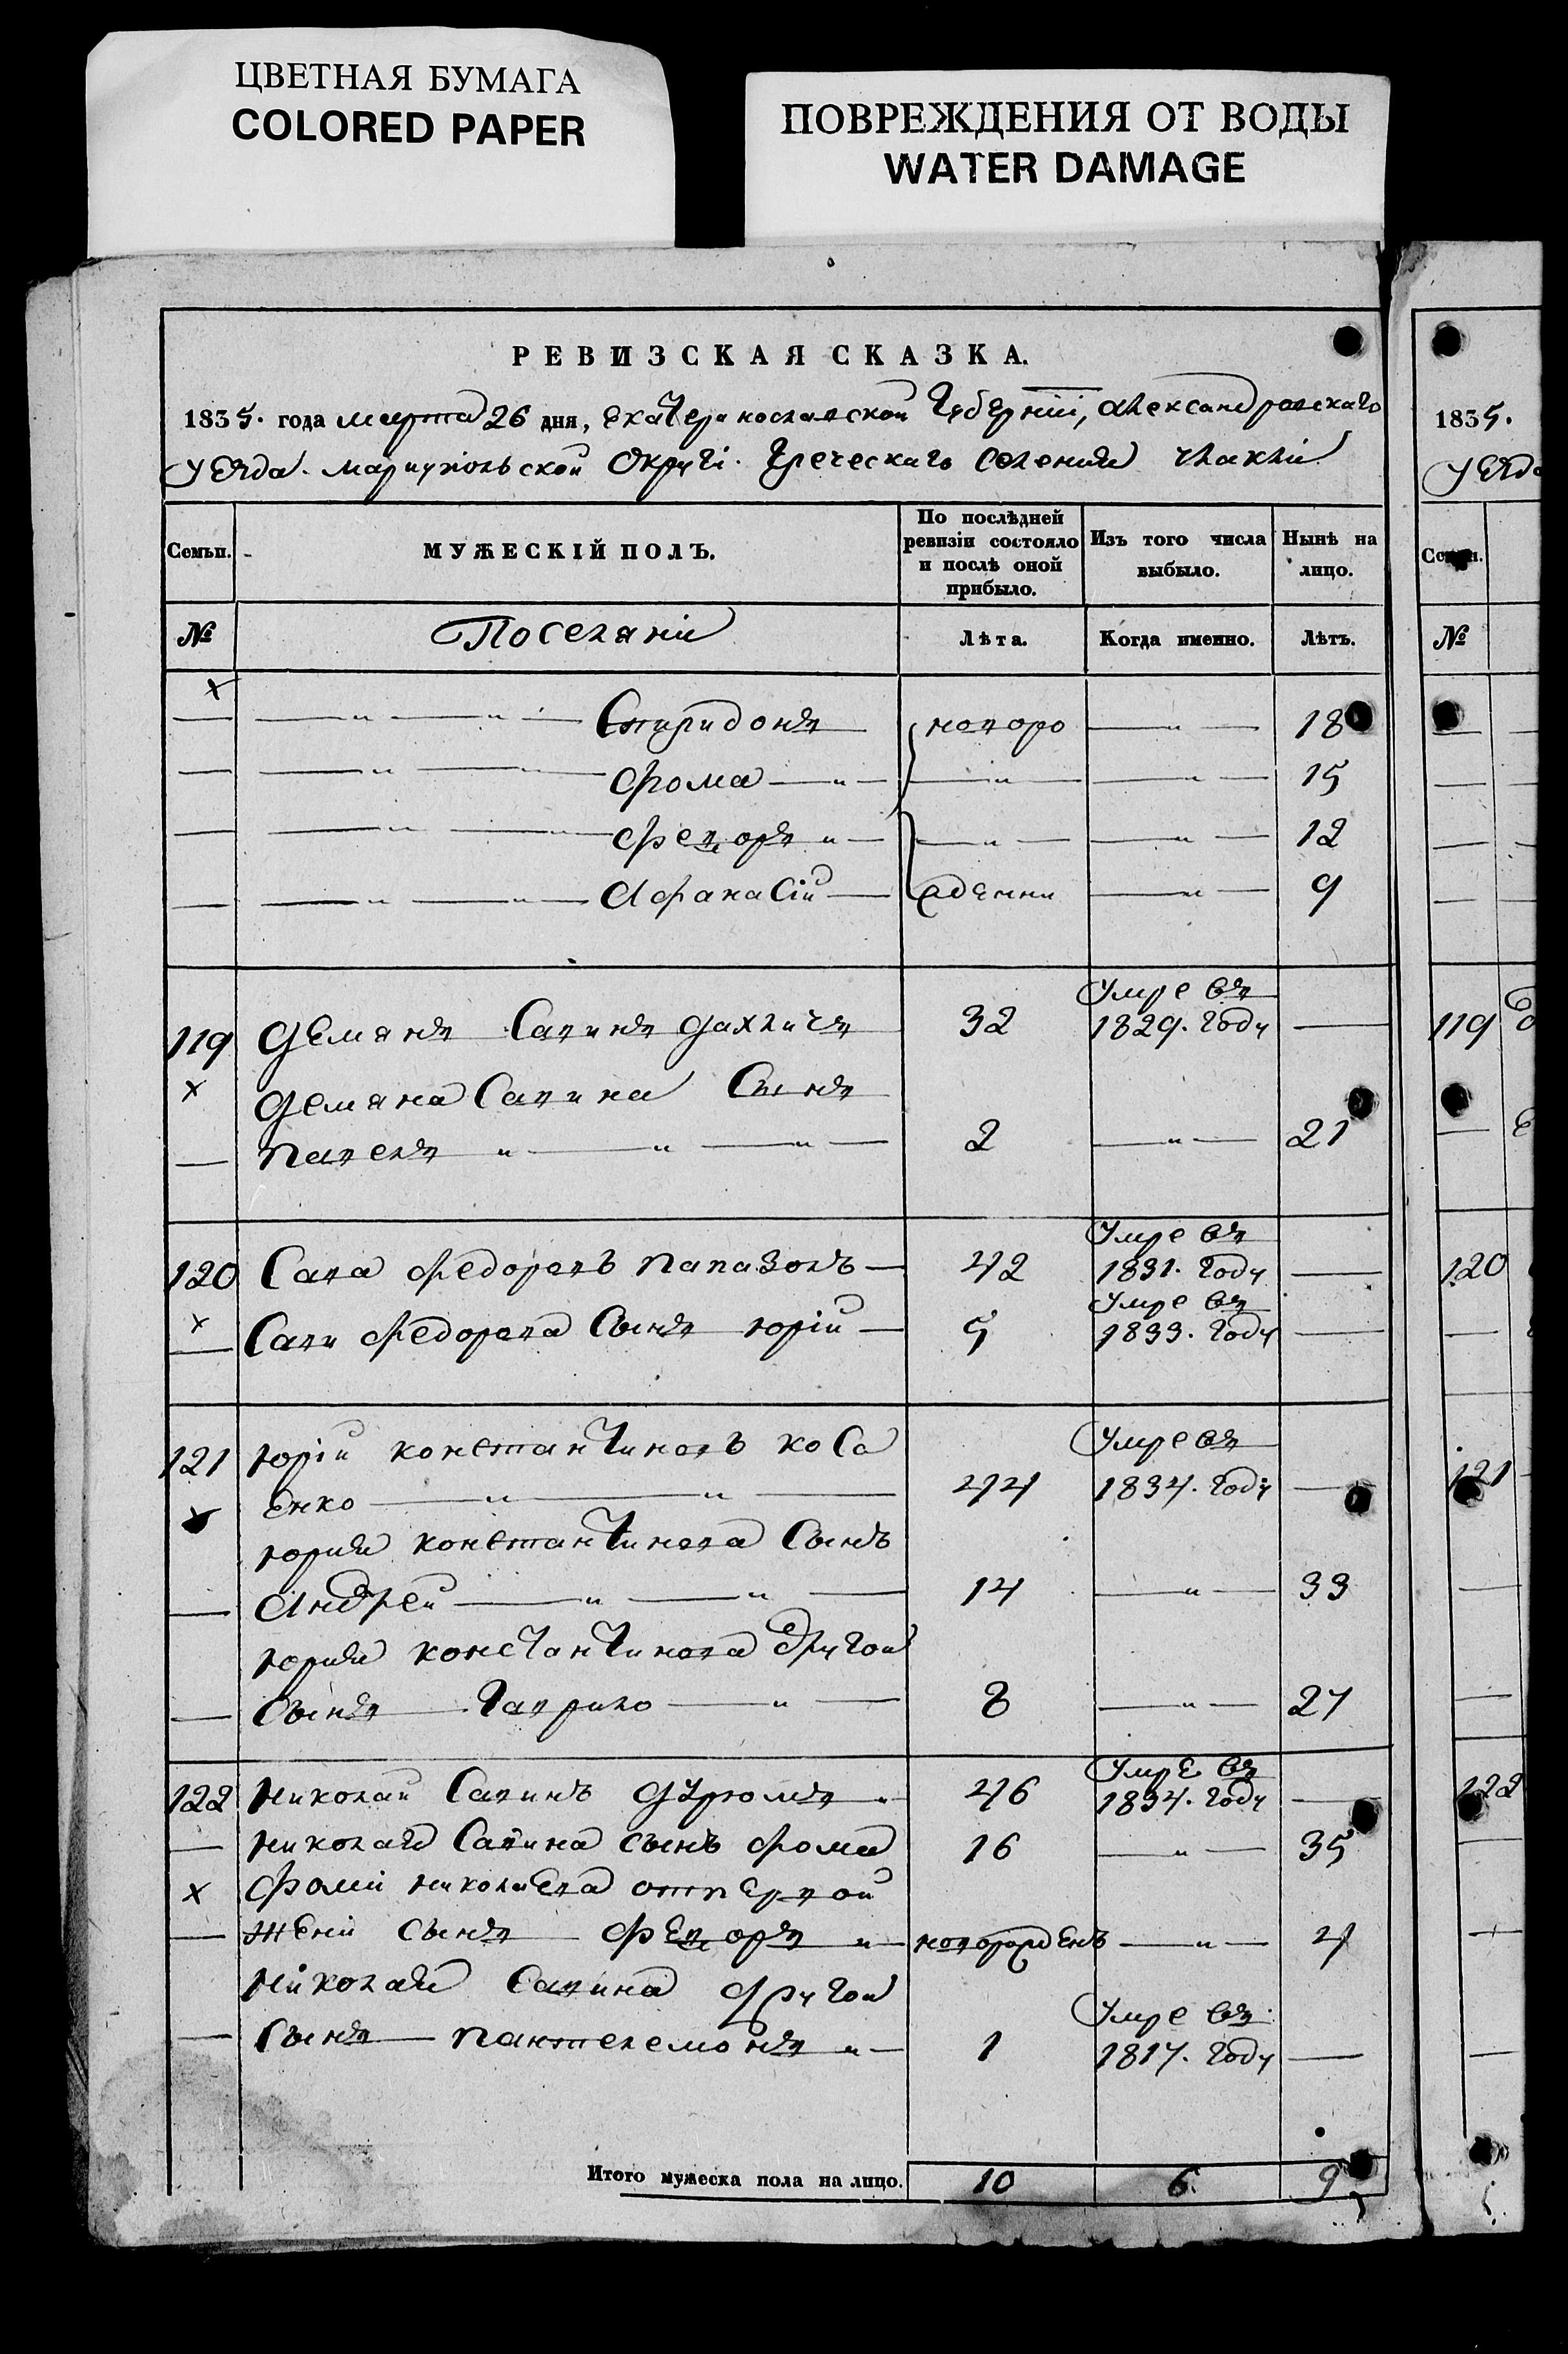 ЦВЕТНАЯ БУМАГА
COLORED PAPER
ПОВРЕЖДЕНИЯ ОТ ВОДЫ
WATER DAMAGE
РЕВИЗСКАЯ СКАЗКА.
1835. года марта 26 дня, Екатеринославской Губерніи, Александровскаго
уезда. мариупольской округи. Греческаго Селения
Семьи. МУЖЕСКІЙ ПОЛЪ. По послѣдней ревизіи состояло и послѣ оной прибыло. Изъ того числа выбыло. Нынѣ на лицо.
№ Поселяни Лѣта. Когда именно. Лѣтъ.
Спиридонъ новоро 18
Фома 15
Федоръ 12
Афанасій жденни 9
Умре въ
119 Демянъ Савинъ 32 1829. Году
Демяна Савина Сынъ
Павелъ 2 21
Умре въ
120 Сава Федоровъ Папазовъ 42 1831. Году
Умре въ
Сави Федорова Сынъ юрій 5 1833. Году
121 юрій константиновъ коса Умре въ
енко 44 1834. Году
юрия константинова Сынъ
Андрей 14 33
юрия константинова другой
Сынъ Гаврило 8 27
Умре въ
122 Николай Савинъ 46 1834. Году
николая Савина сынъ Фома 16 35
Фоми николаева отпервой
жени Сынъ Федоръ новорожденъ 4
Николая Савина другой
Умре въ
Сынъ пантелемонъ 1 1817. Году
Итого мужеска пола на лицо. 10 6 9
1835.
№
119
120
121
122